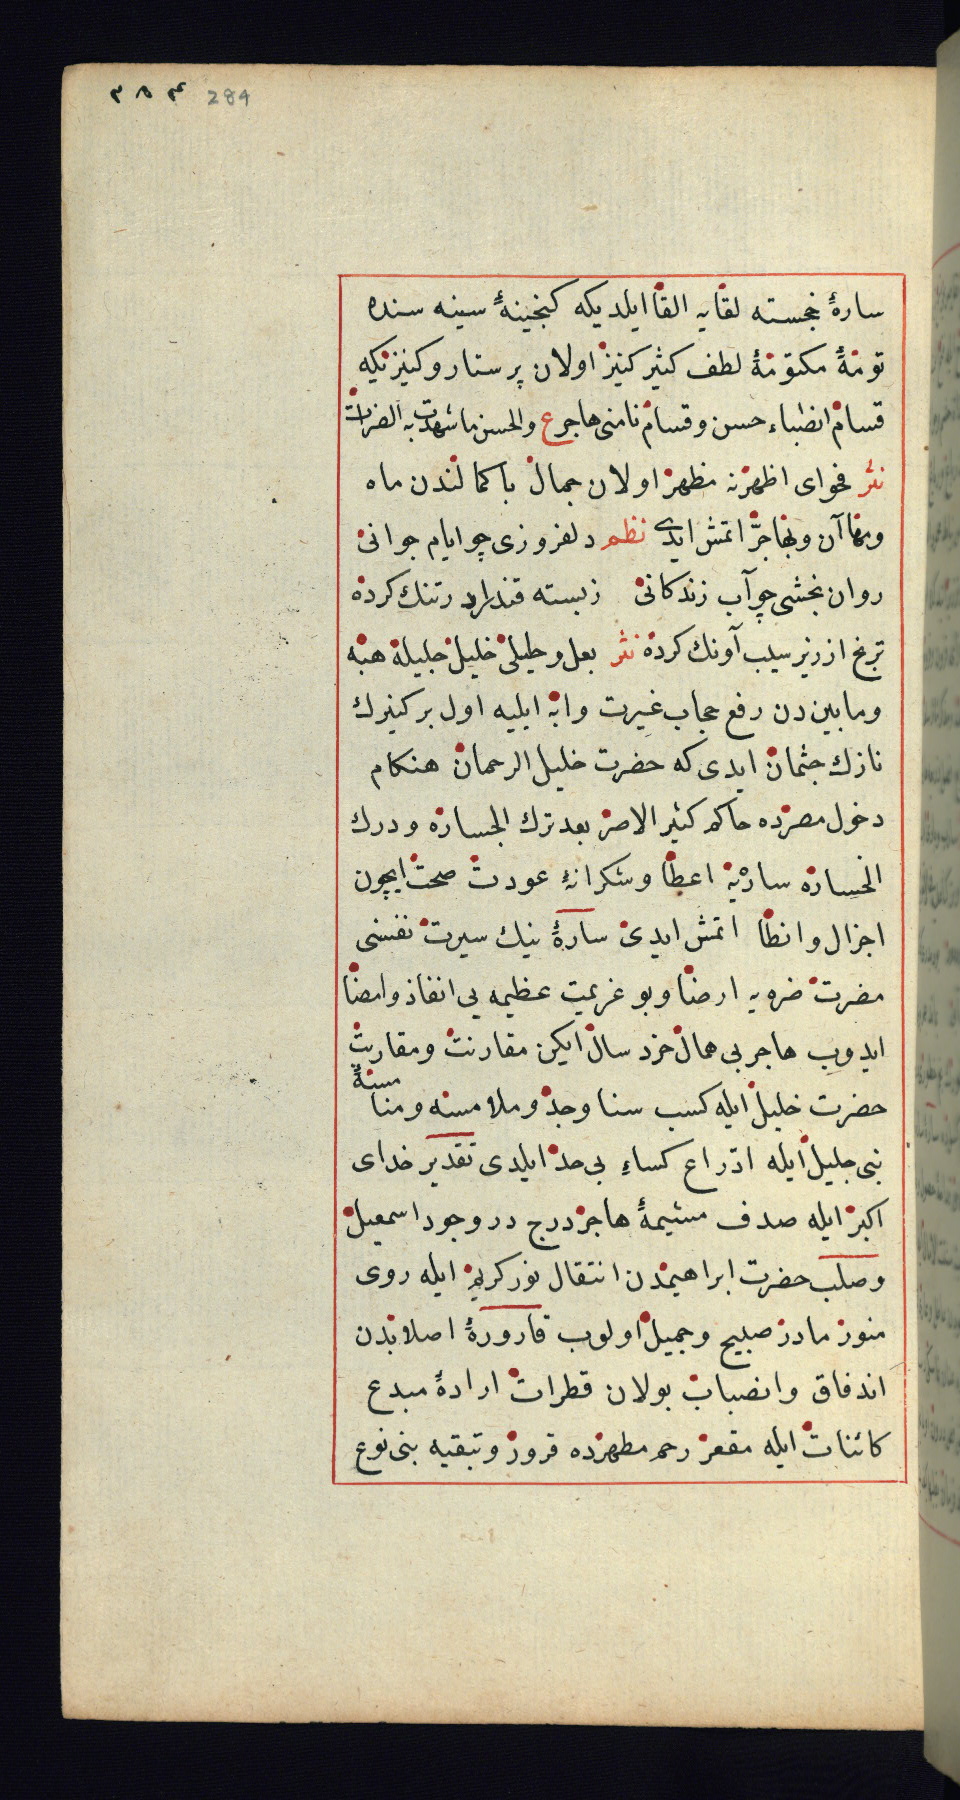 ٢٨٤ 284
سارۀ خجسته لقایه القا ایلدیکه کنجینۀ سینه سنده
تومۀ مکتومۀ لطف کثیر کنیز اولان پرستار و کنیزنکیه
قسام انضباء حسن و قسام نامنی هاجر ع والحسن ما شهدت به الضرات
نثر فحوای اظهرنه مظهر اولان جمال باکمالندن ماه
آن و اتمش ایدی نظم دلفروزی چو ایام جوانی
روان بخشی چو آب زندکانی زبسته قند را در تنك کرده
ترنج از زیر سیب آونك کرده نثر بعل و حلیلی خلیل جلیله هبه
ومابین دن رفع حجاب غیرت وابه ایلیه اول بر کنیزك
نازك جثمان ایدی که حضرت خلیل الرحمان هنکام
دخول مصرده حاکم کثیر الاصر بعد ترك الجسارة ودرك
الخسارة سارەیە اعطا وشکرانۀ عودت صحت ایچون
اجزال وانطا اتمش ایدی سارۀ نیك سیرت نفسنی
مضرت ضره یه ارضا وبو عزیمت عظیمه یی انفاذ وامضا
ایدوب هاجر بی همال خرد سال ایکن مقارنت ومقاربت
حضرت خلیل ایله کسب سنا وجد وملامسه ومناسمۀ
نبی جلیل ایله ادراع کساء بی حد ایلدی تقدیر خدای
اکبر ایله صدف مشیمۀ هاجر درج در وجود اسمعیل
وصلب حضرت ابراهیمدن انتقال نور کریم ایله روی
منور مادر صبیح وجمیل اولوب قارورۀ اصلابدن
اندفاق وانصباب بولان قطرات ارادۀ مبدع
کائنات ایله مقعر رحم مطهرده قرور وتبقیه بنی نوع